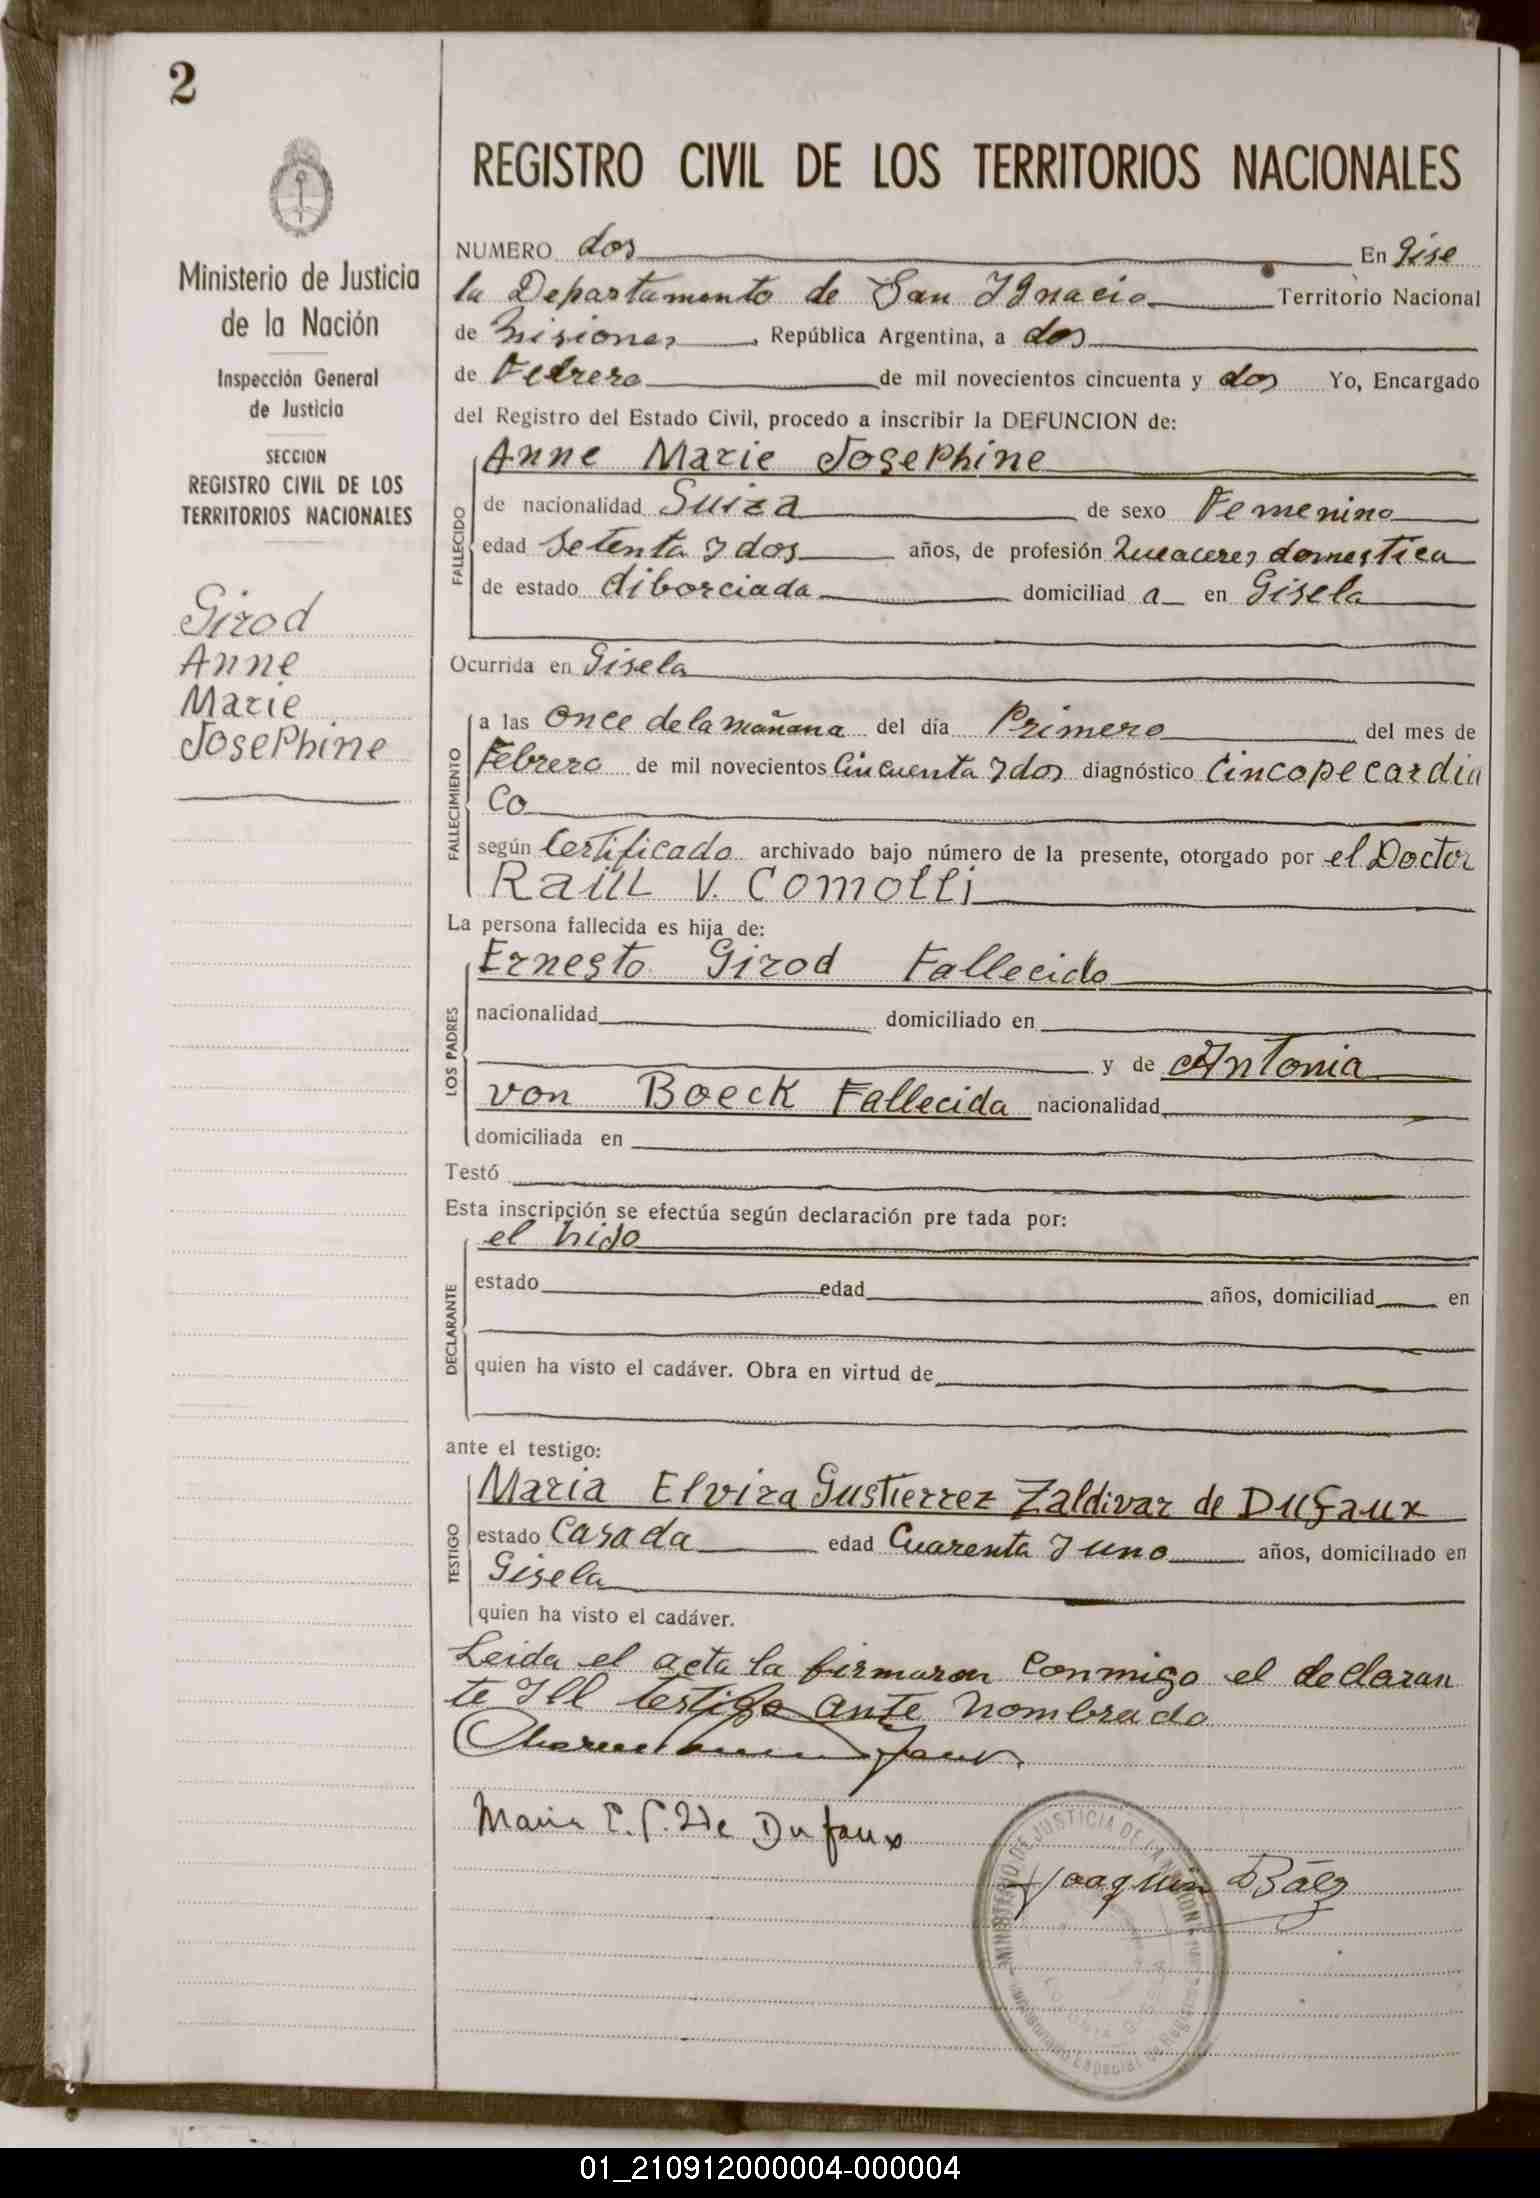 2
Ministerio de Justicia
de la Nación
Inspección General
de Justicia
SECCION
REGISTRO CIVIL DE LOS
TERRITORIOS NACIONALES
Girod
Anne
Marie
Josephine
REGISTRO CIVIL DE LOS TERRITORIOS NACIONALES
NUMERO dos En Gise
la Departamento de San Ignacio Territorio Nacional
de Misiones, República Argentina, a dos
de Febrero de mil novecientos cincuenta y dos Yo, Encargado
del Registro del Estado Civil, procedo a inscribir la DEFUNCION de:
Anne Marie Josephine
FALLECIDO
de nacionalidad Suiza de sexo Femenino
edad Setenta y dos años, de profesión Queaceres domestica
de estado diborciada domiciliad a en Gisela
Ocurrida en Gisela
FALLECIMIENTO
a las once de la mañana del día Primero del mes de
Febrero de mil novecientos Cincuenta y dos diagnóstico Cincope cardia
Co
según Certificado archivado bajo número de la presente, otorgado por el Doctor
Raúl V. Comolli
La persona fallecida es hija de:
LOS PADRES
Ernesto Girod Fallecido
nacionalidad domiciliado en
y de Antonia
von Boeck Fallecida nacionalidad
domiciliada en
Testó
Esta inscripción se efectúa según declaración pre tada por:
DECLARANTE
el hijo
estado edad años, domiciliad en
quien ha visto el cadáver. Obra en virtud de
ante el testigo:
TESTIGO
Maria Elvira Gustierrez Zaldivar de Dufaux
estado Casada edad Cuarenta y uno años, domiciliado en
Gisela
quien ha visto el cadáver.
Leida el acta la firmaron conmigo el declaran
te y ll testigo ante nombrado
Maria E. G. Z de Dufaux
MINISTERIO DE JUSTICIA DE LA NACION
Joaquin Báez
01_210912000004-000004